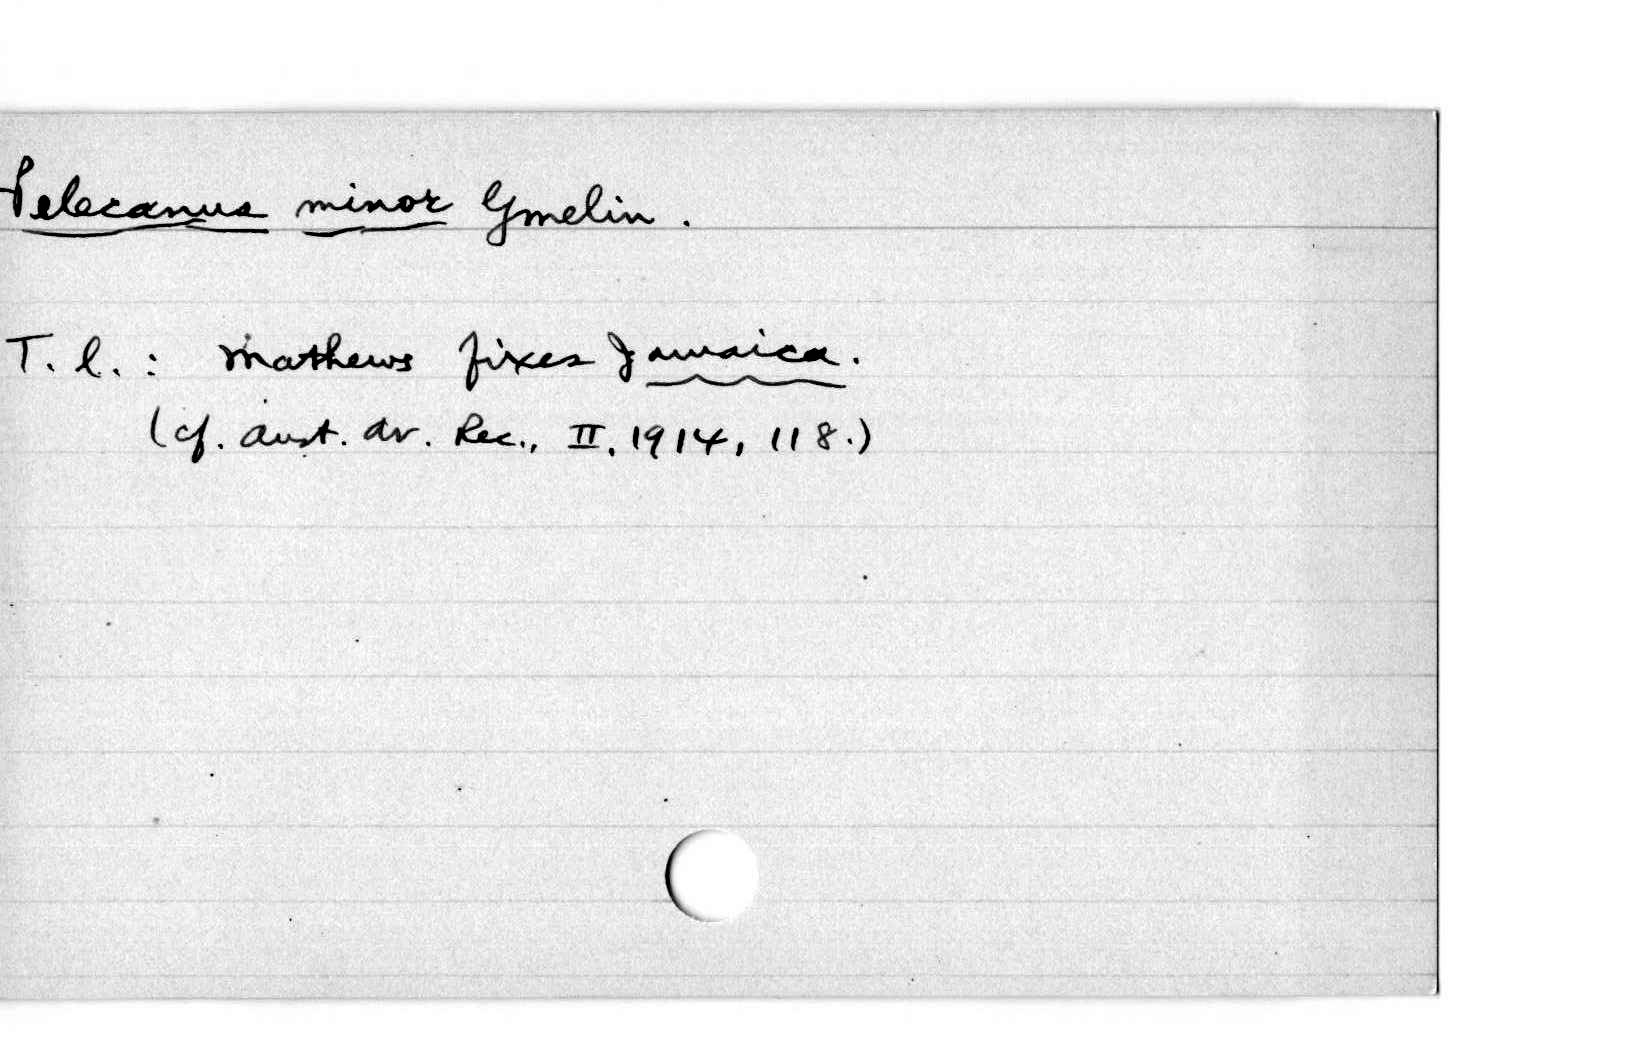 Pelecanus minor Gmelin.
T. l. : Mathews fixes Jamaica.
(cf. Aust. Av. Rec., II, 1914, 118.)